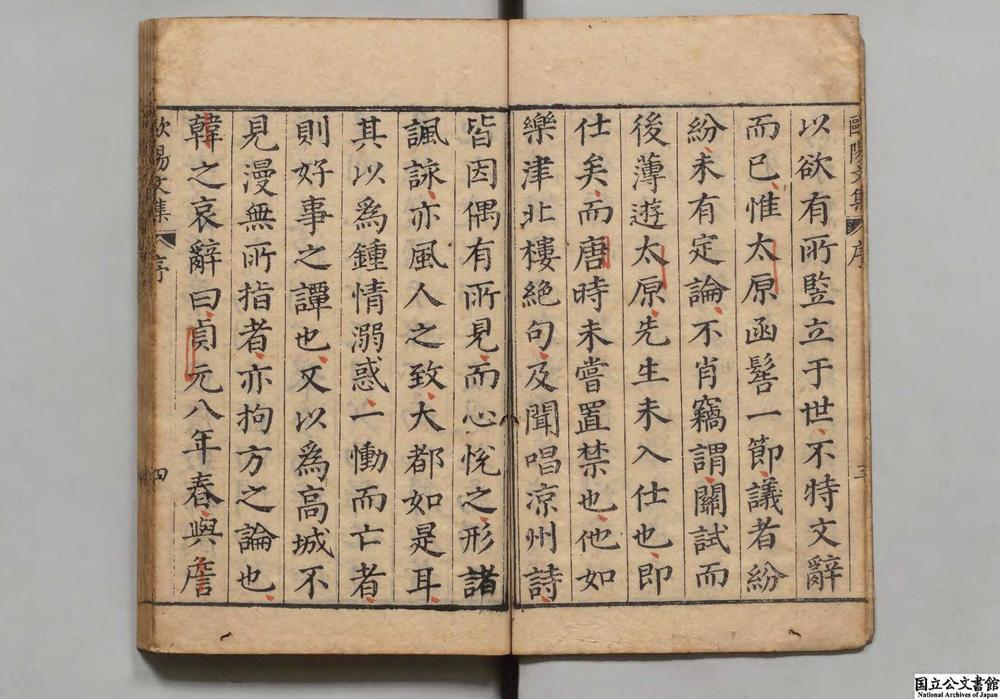 歐陽文集 序
三
以欲有所豎立于世不特文辭
而已惟太原函髻一節議者紛
紛未有定論不肖竊謂關試而
後薄遊太原先生未入仕也即
仕矣而唐時未嘗置禁也他如
樂津北樓絕句及聞唱涼州詩
皆因偶有所見而心悅之形諸
諷詠亦風人之致大都如是耳
其以爲鍾情溺惑一慟而亡者
則好事之譚也又以爲高城不
見漫無所指者亦拘方之論也
韓之哀辭曰貞元八年春與詹
歐陽文集 序
四
国立公文書館
National Archives of Japan